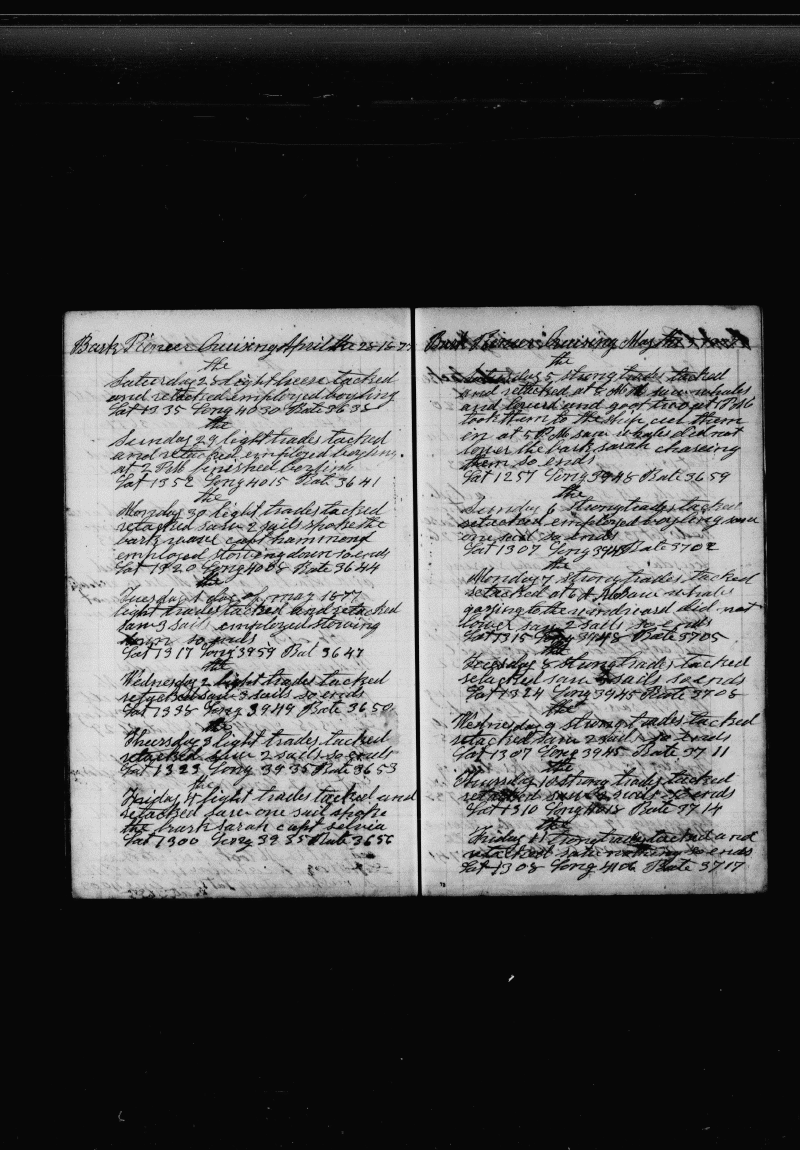 Bark Pioneer Cruising April the 28 1877
the
Saturday 28 light breese tacked
and retacked employed boyling
Lat 1335 Long 4030 Rate 3638
the
Sunday 29 light trades tacked
and retacked employed boyling
at 2 PM finished boyling
Lat 1352 Long 4015 Rate 3641
the
Monday 30 light trades tacked
retacked saw 2 sails spoke the
bark wave capt hammond
employed stowing down so ends
Lat 1320 Long 4008 Rate 3644
the
Tuesday 1 day of may 1877
light trades tacked and retacked
saw 3 sails employed stowing
down so ends
Lat 1317 Long 3959 Rat 3647
the
Wednesday 2 light trades tacked
retacked saw 3 sails so ends
Lat 1338 Long 3949 Rate 3650
the
Thursday 3 light trades tacked
retacked saw 2 sails so ends
Lat 1323 Long 3935 Rate 3653
the
Friday 4 light trades tacked and
retacked saw one sail spoke
the bark Sarah capt selvia
Lat 1300 Long 3935 Rate 3656
Bark Pioneer Cruising May the
the
Saturday 5 strong trades tacked
and retacked at saw whales
and lowerd and goot two at 1 PM
took them to the ship cut them
in at 5 PM saw whales did not
lower the bark sarah chaseing
them so ends
Lat 1257 Long 3948 Rate 3659
the
Sunday 6 strong trades tacked
retacked employed boyling saw
one sail so ends
Lat 1307 Long 3948 Rate 3702
the
Monday 7 strong trades tacked
retacked at 6 A M saw whales
going to the windward did not
lower saw 2 sails so ends
Lat 1315 Long 3948 Rate 3705
the
Tuesday 8 strong trades tacked
retacked saw sails so ends
Lat 1324 Long 3945 Rate 3708
the
Wednesday 9 strong trades tacked
retacked saw 2 sails so ends
Lat 1307 Long 3945 Rate 3711
the
Thursday 10 strong trades tacked
retacked saw 2 sails so ends
Lat 1310 Long 4018 Rate 3714
the
Friday 11 strong trades tacked and
retacked saw nothing so ends
Lat 1308 Long 4106 Rate 3717